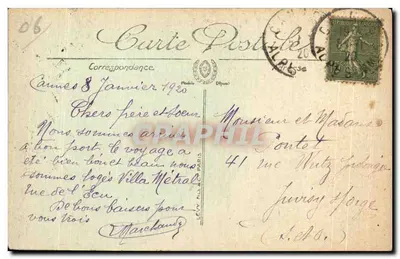 06
Carte Postale
Correspondance
Cannes 8 Janvier 1920
Chers frère et sœur
Nous sommes arrivés
à bon port. Le voyage a
été bien bon et beau nous
sommes logés Villa Métral
rue de l'Ecu
De bons baisers pour
vous trois
Marchand
Monsieur et Madame
Pontet
41 rue
Juvisy s/orge
(S.&O.)